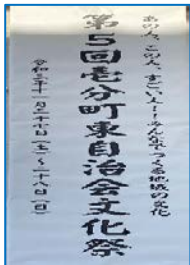 あの人、この人、すごい人!!みんなでつくる地域の文化
第5回壱分町東自治会文化祭
令和三年十一月二十七日(土)~二十八日(日)